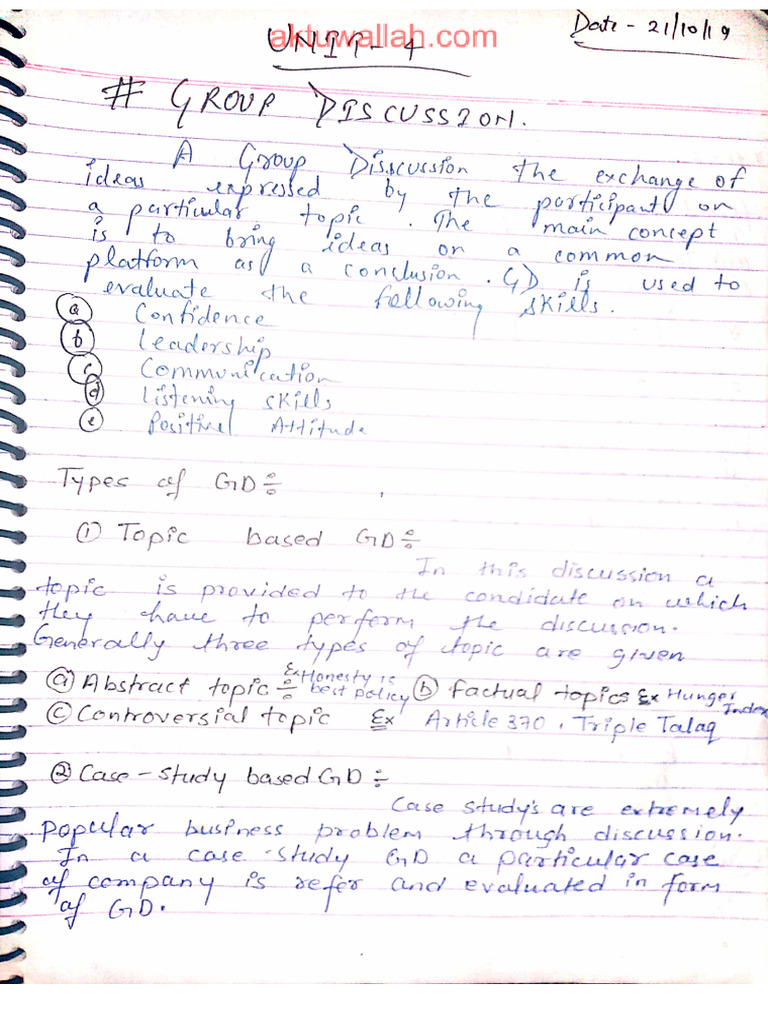 aktuwallah.com
Date - 21/10/19
UNIT-4
# GROUP DISCUSSION.
A Group Disscussion the exchange of
ideas expressed by the participant on
a particular topic. The main concept
is to bring ideas on a common
platform as a conclusion. GD is used to
evaluate the following skills.
(a) Confidence
(b) Leadership
(c) Communication
(d) Listening skills
(e) Positive Attitude
Types of GD÷
(1) Topic based GD÷
In this discussion a
topic is provided to the candidate on which
they have to perform the discussion.
Generally three types of topic are given
(a) Abstract topic ÷ Ex Honesty is best policy (b) factual topics Ex Hunger Index
(c) Controversial topic Ex Article 370, Triple Talaq
(2) Case-study based GD÷
Case study's are extremely
popular business problem through discussion.
In a case-study GD a particular case
of company is refer and evaluated in form
of GD.